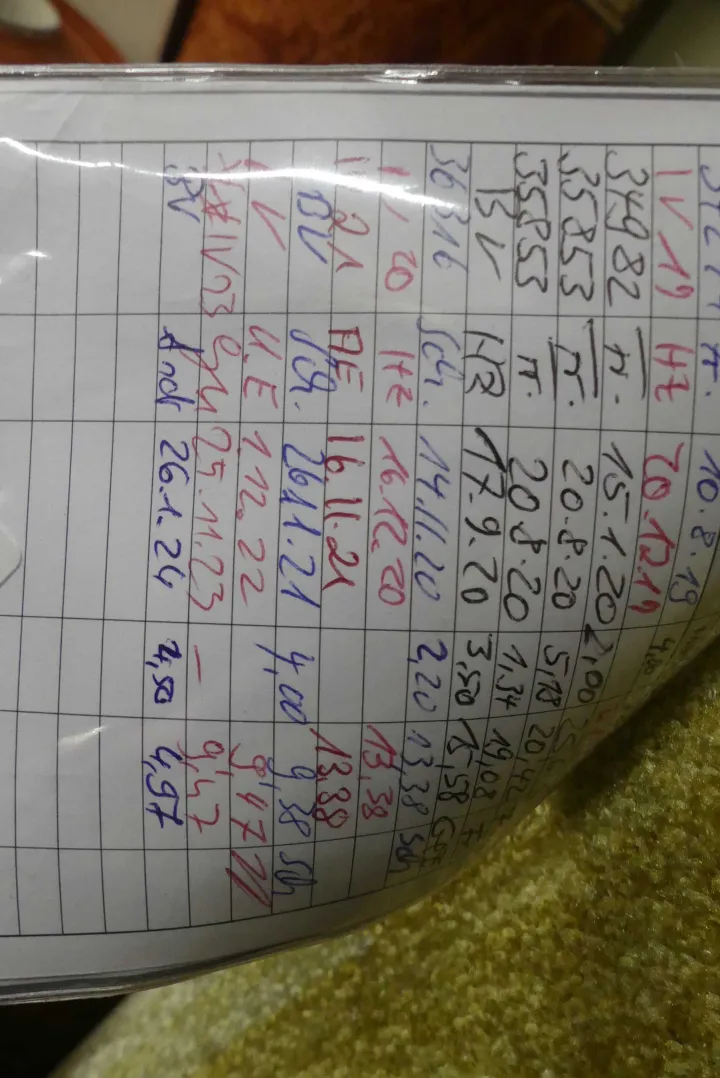 10.8.19
IV 19 HZ 20.12.19 4,00
34982 π. 15.1.20 2,00
35853 π. 20.8.20 5,18 20,42
35853 π. 20.8.20 1,34 19,08
BV HZ 17.9.20 3,50 15,58
36316 Sch. 14.11.20 2,20 13,38 Sch
IV 20 HZ 16.12.20 13,38
21 AE 16.11.21 13,38
BV Sch. 26.11.21 4,00 9,38 Sch
IV U.E 1.12.22 9,47
IV 23 25.11.23 – 9,47
BV 26.1.24 4,50 4,97